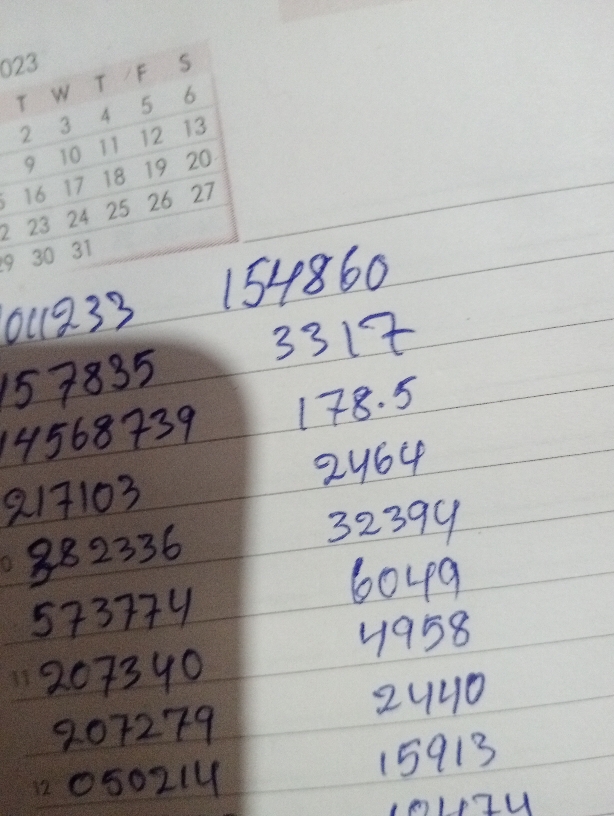 023
T W T F S
2 3 4 5 6
9 10 11 12 13
16 17 18 19 20
23 24 25 26 27
29 30 31
011233 154860
157835 3317
14568739 178.5
217103 2464
382336 32394
573774 6049
11 207340 4958
207279 2440
12 050214 15913
10474